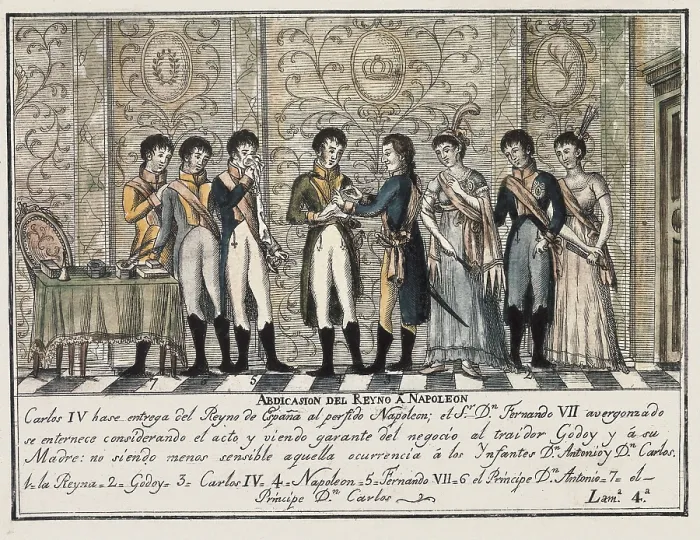 7 6 5 4 3 2 1
ABDICASION DEL REYNO A NAPOLEON
Carlos IV hase entrega del Reyno de España al perfido Napoleon; el S.r D.n Fernando VII avergonzado
se enternece considerando el acto y viendo garante del negocio al traidor Godoy y á su
Madre: no siendo menos sensible aquella ocurrencia á los Ynfantes D.n Antonio y D.n Carlos.
1= la Reyna= 2= Godoy= 3= Carlos IV= 4= Napoleon =5= Fernando VII=6 el Principe D.n Antonio= 7= el-
Principe D.n Carlos
Lam.a 4.a